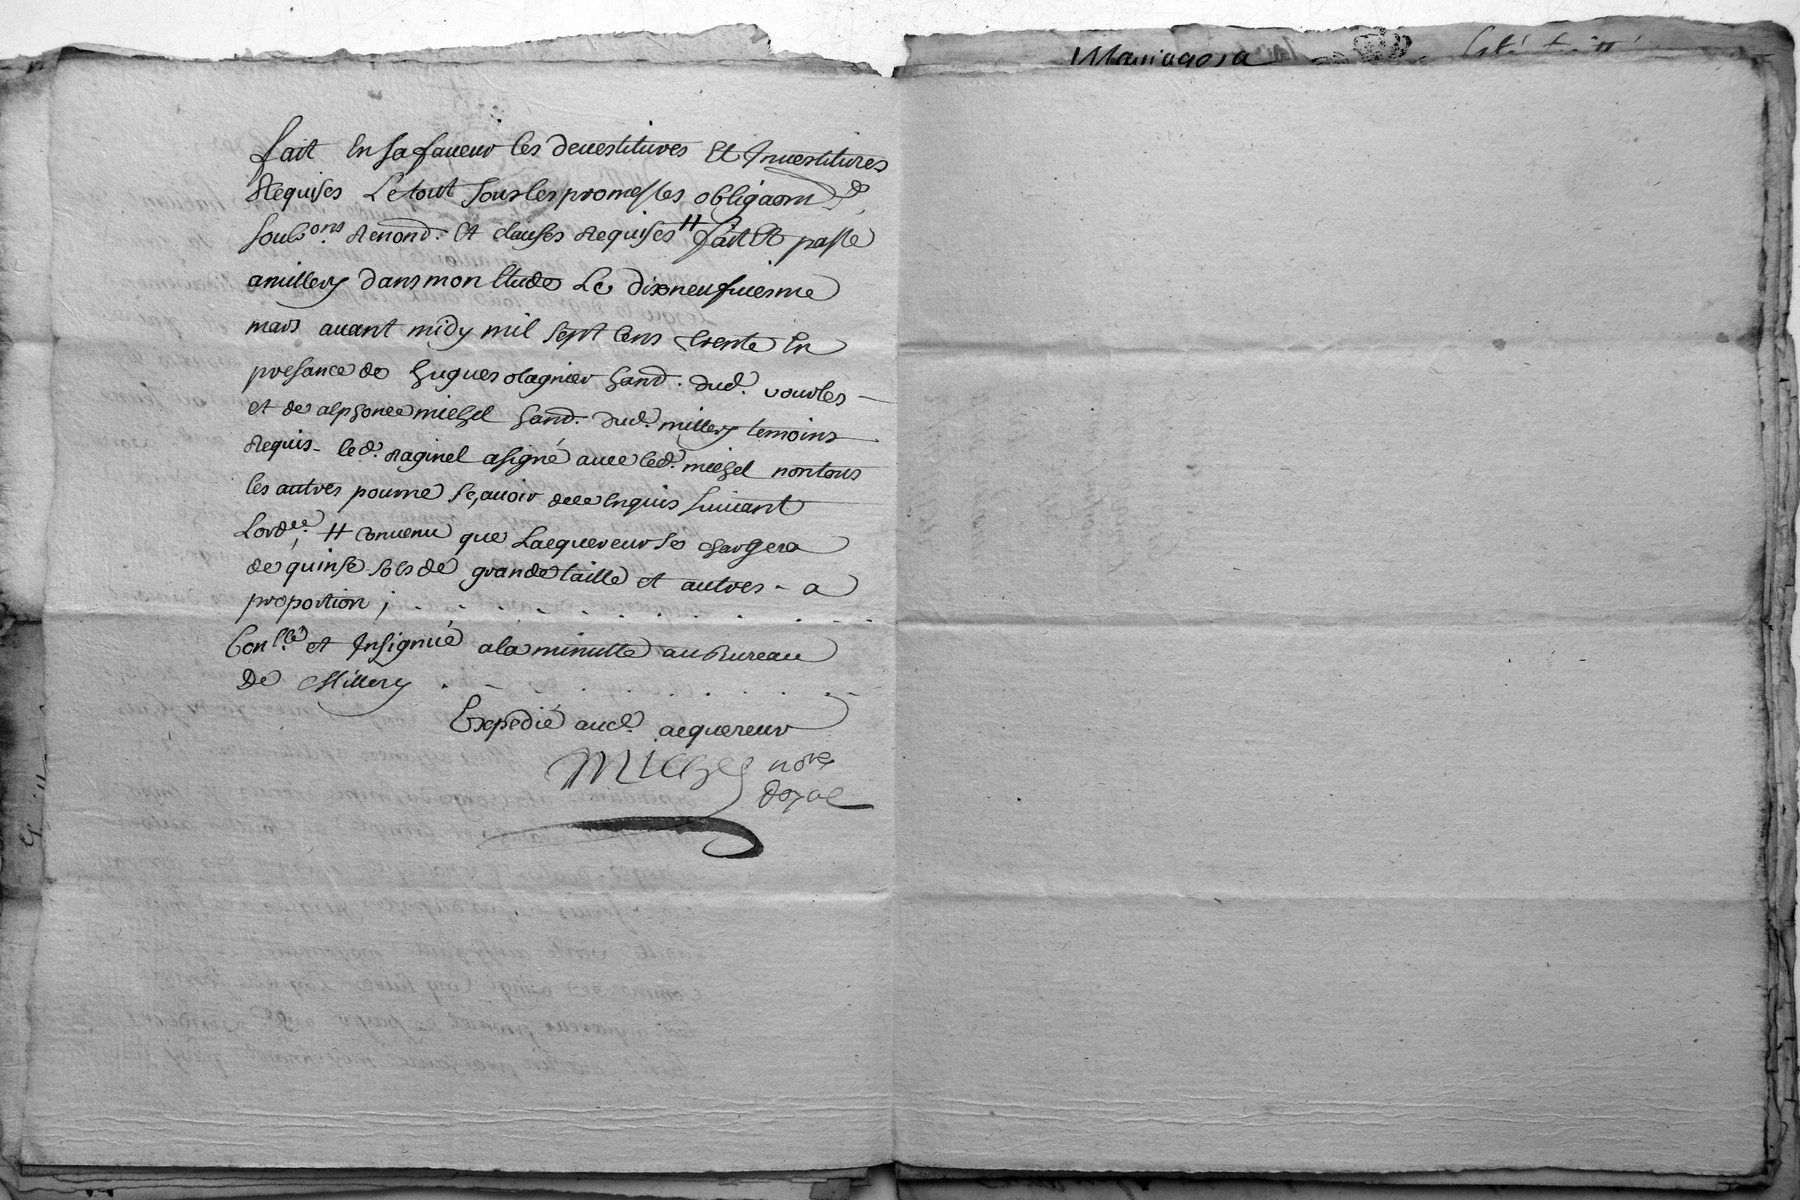 fait En sa faueur les deuestitures Et Inuestitures
Requises Le tout sous les promesses obligaōns
soubs.ons Renond. Et clauses Requises # fait Et passé
a millery dans mon Etude Le dixneufuiesme
mars auant midy mil sept cens trente En
presance de hugues Ragnier hand. dud. vourles
et de alphonce michel hand. dud. millery temoins
Requis - led. Raginel a signé auec led. michel non tous
les autres pour ne sçauoir de ce Enquis suiuant
Lord.ce # conuenu que Lacquereur se chargera
de quinse sols de grande taille et autres - a
proportion ;
Con.llé et Insignué a la minutte au Bureau
De Millery
Expedié aud. acquereur
Michel no.re
Royal
Maniagora